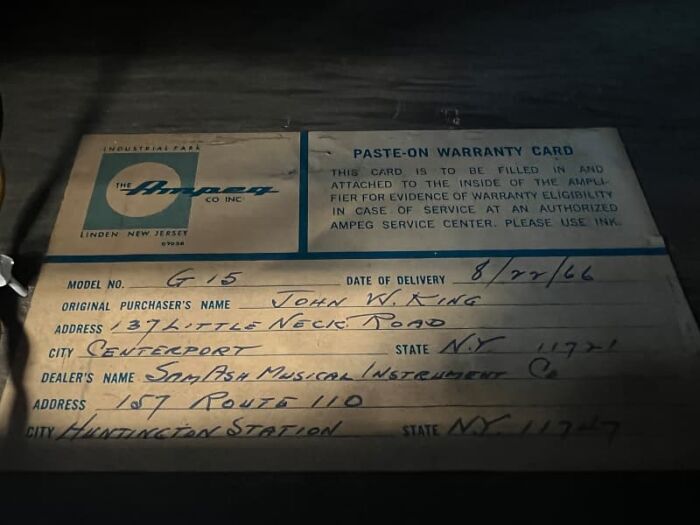 INDUSTRIAL PARK
THE Ampeg CO INC
LINDEN NEW JERSEY
07036
PASTE-ON WARRANTY CARD
THIS CARD IS TO BE FILLED IN AND
ATTACHED TO THE INSIDE OF THE AMPLI-
FIER FOR EVIDENCE OF WARRANTY ELIGIBILITY
IN CASE OF SERVICE AT AN AUTHORIZED
AMPEG SERVICE CENTER. PLEASE USE INK.
MODEL NO. G 15 DATE OF DELIVERY 8/22/66
ORIGINAL PURCHASER'S NAME JOHN W. KING
ADDRESS 137 LITTLE NECK ROAD
CITY CENTERPORT STATE N.Y. 11721
DEALER'S NAME SAM ASH MUSICAL INSTRUMENT Co
ADDRESS 157 ROUTE 110
CITY HUNTINGTON STATION STATE N.Y. 11747